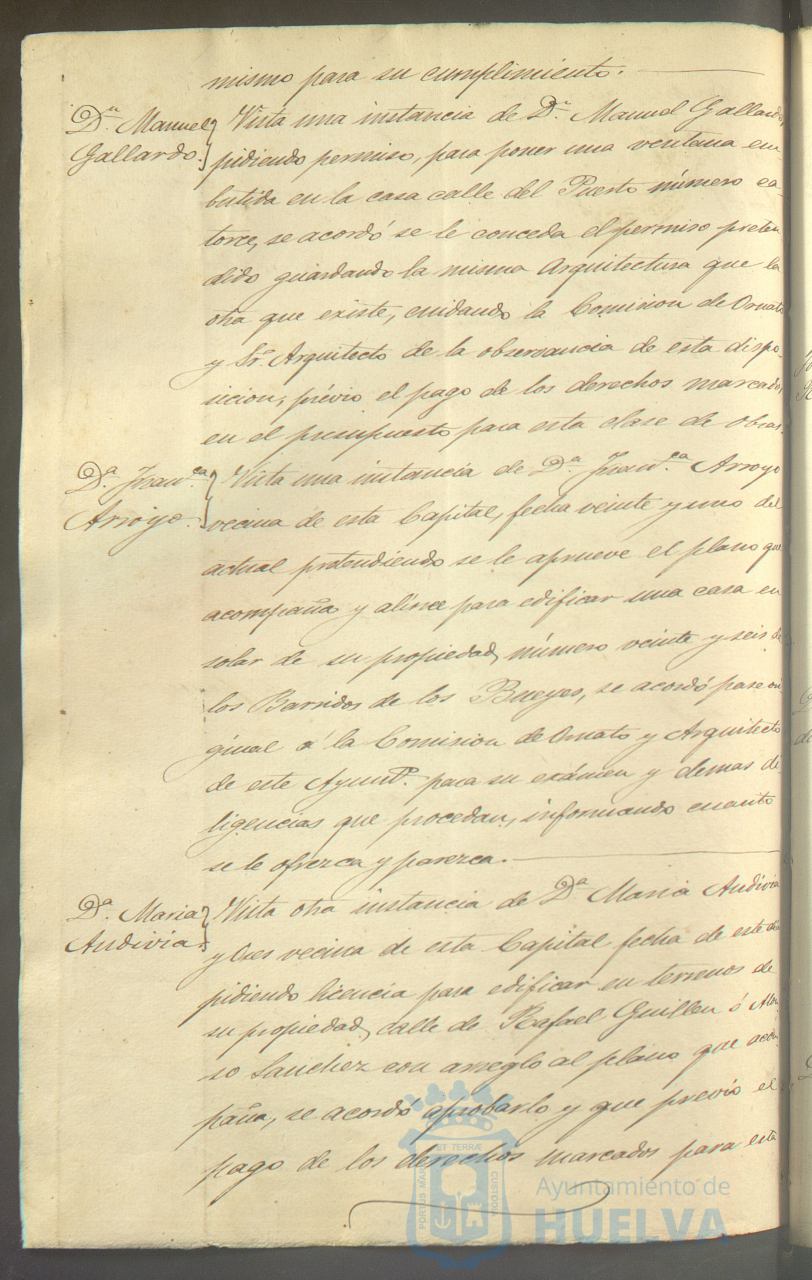 mismo para su cumplimiento.
Dn. Manuel
Gallardo.
Vista una instancia de Dn. Manuel Gallardo,
pidiendo permiso, para poner una ventana em-
butida en la casa calle del Puerto número ca-
torce, se acordó se le conceda el permiso preten
dido guardando la misma Arquitectura que la
otra que existe, cuidando la Comision de Ornato
y Sr. Arquitecto de la observancia de esta dispo-
sicion, prévio el pago de los derechos marcados
en el presupuesto para esta clase de obras.
Da. Franca
Arroyo.
Vista una instancia de Da. Franca Arroyo
vecina de esta Capital, fecha veinte y uno del
actual pretendiendo se le apruebe el plano que
acompaña y alinee para edificar una casa en
solar de su propiedad, número veinte y seis de
los Barridos de los Bueyes, se acordó pase ori
ginal á la Comision de Ornato y Arquitecto
de este Ayunto. para su exámen y demas di
ligencias que procedan, informando cuanto
se le ofrezca y parezca.
Da. Maria
Andivia
Vista otra instancia de Da. Maria Andivia
y vecina de esta Capital fecha de este dia
pidiendo licencia para edificar en terrenos de
su propiedad, calle de Rafael Guillen ó Alon
so Sanchez con arreglo al plano que acom
paña, se acordó aprobarlo y que previo el
pago de los derechos marcados para esta
ET TERRÆ
PORTUS MA
CUSTODIA
Ayuntamiento de
HUELVA